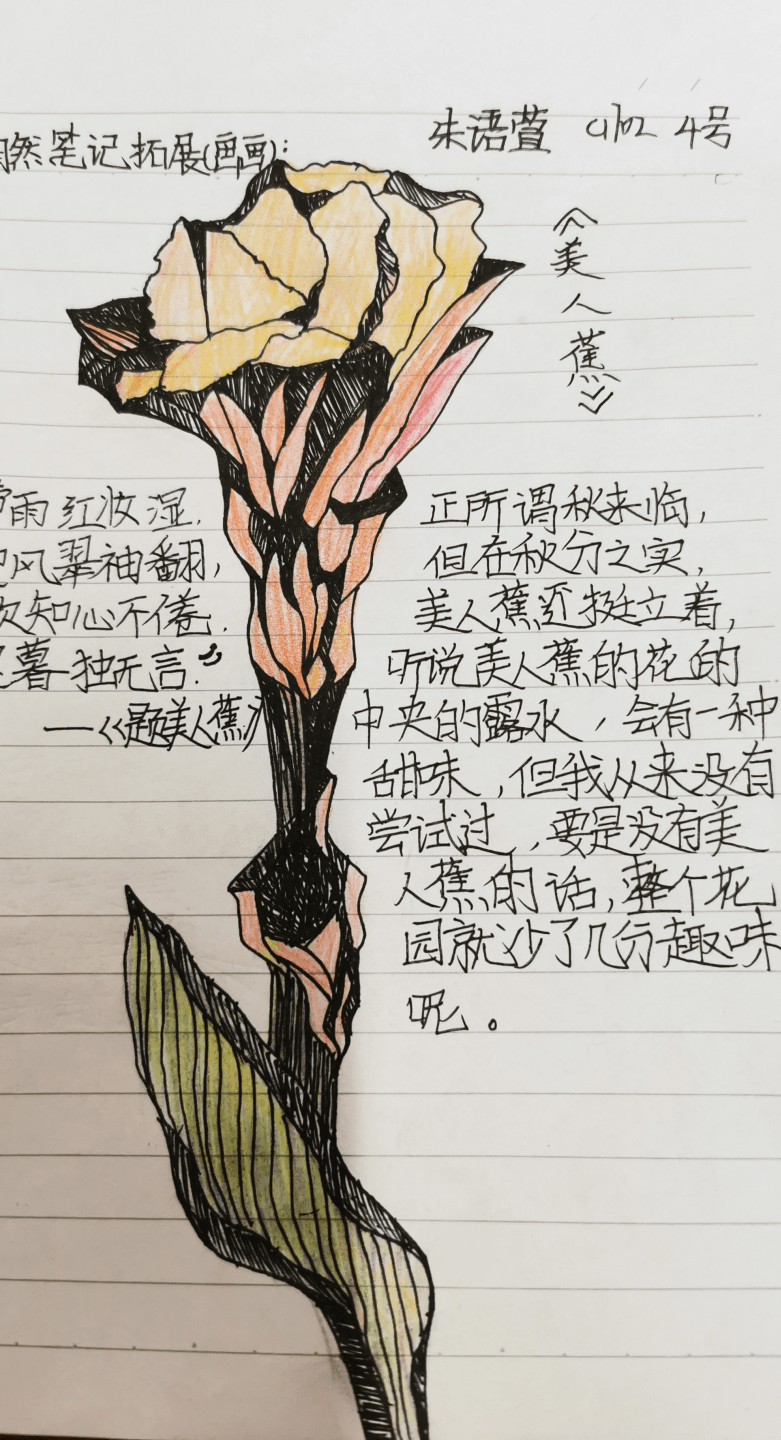 然笔记拓展(画画):
朱语萱 4号
《美人蕉》
雨红妆湿,
风翠袖翻,
知心不倦,
暮独无言."
—《题美人蕉》
正所谓秋来临,
但在秋分之实,
美人蕉近挺立着,
听说美人蕉的花的
中央的露水,会有一种
甜味,但我从来没有
尝试过,要是没有美
人蕉的话,整个花
园就少了几分趣味
呢。